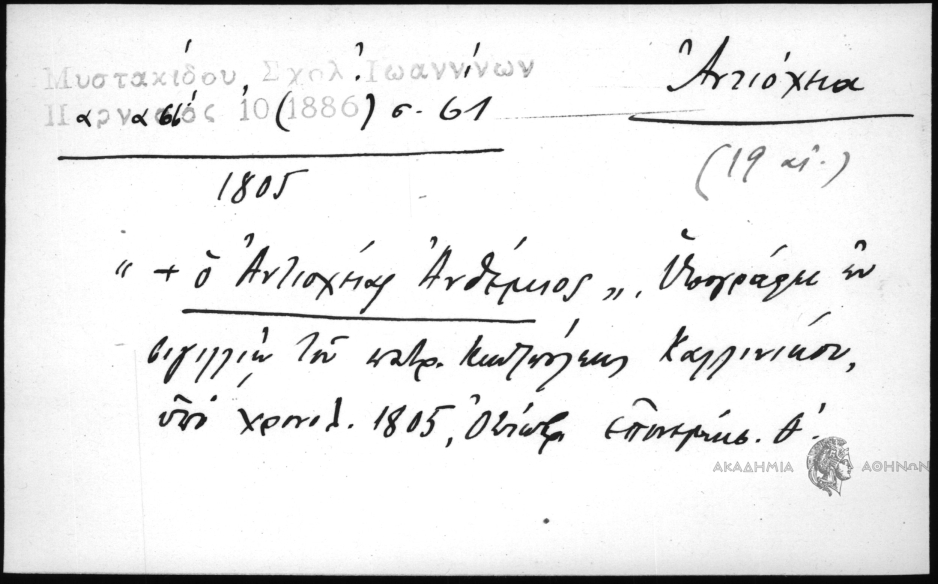 Μυστακίδου, Σχολ. Ἰωαννίνων
Παρνασσός 10 (1886) σ. 61
Ἀντιόχεια
(19 αἰ.)
1805
"+ ὁ Ἀντιοχείας Ἀνθέμιος". Ὑπογράφει ἐν
σιγιλλίῳ τοῦ πατρ. Κωνσταντινουπόλεως Καλλινίκου,
ὑπὸ χρονολ. 1805, Ὀκτωβρ. ἐπινεμήσ. Θ΄.
ΑΚΑΔΗΜΙΑ ΑΘΗΝΩΝ